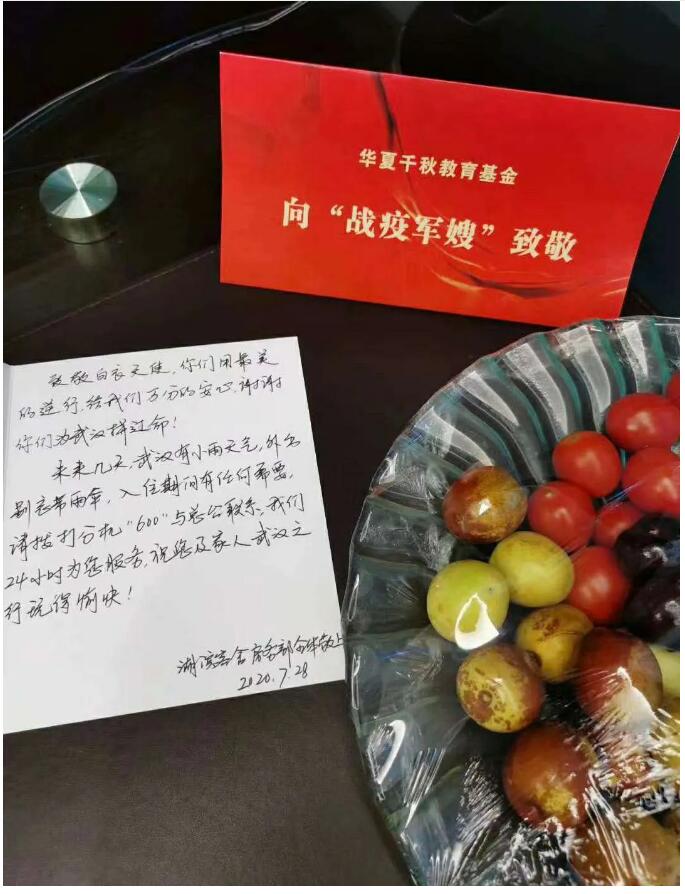 华夏千秋教育基金
向“战疫军嫂”致敬
致敬白衣天使，你们用最美
的逆行，给我们万分的安心，谢谢
你们为武汉拼过命！
未来几天，武汉有小雨天气，外出
别忘带雨伞，入住期间有任何需要，
请拨打分机“600”与总台联系，我们
24小时为您服务，祝您及家人武汉之
行玩得愉快！
湖滨客舍房务部全体敬上
2020.7.28